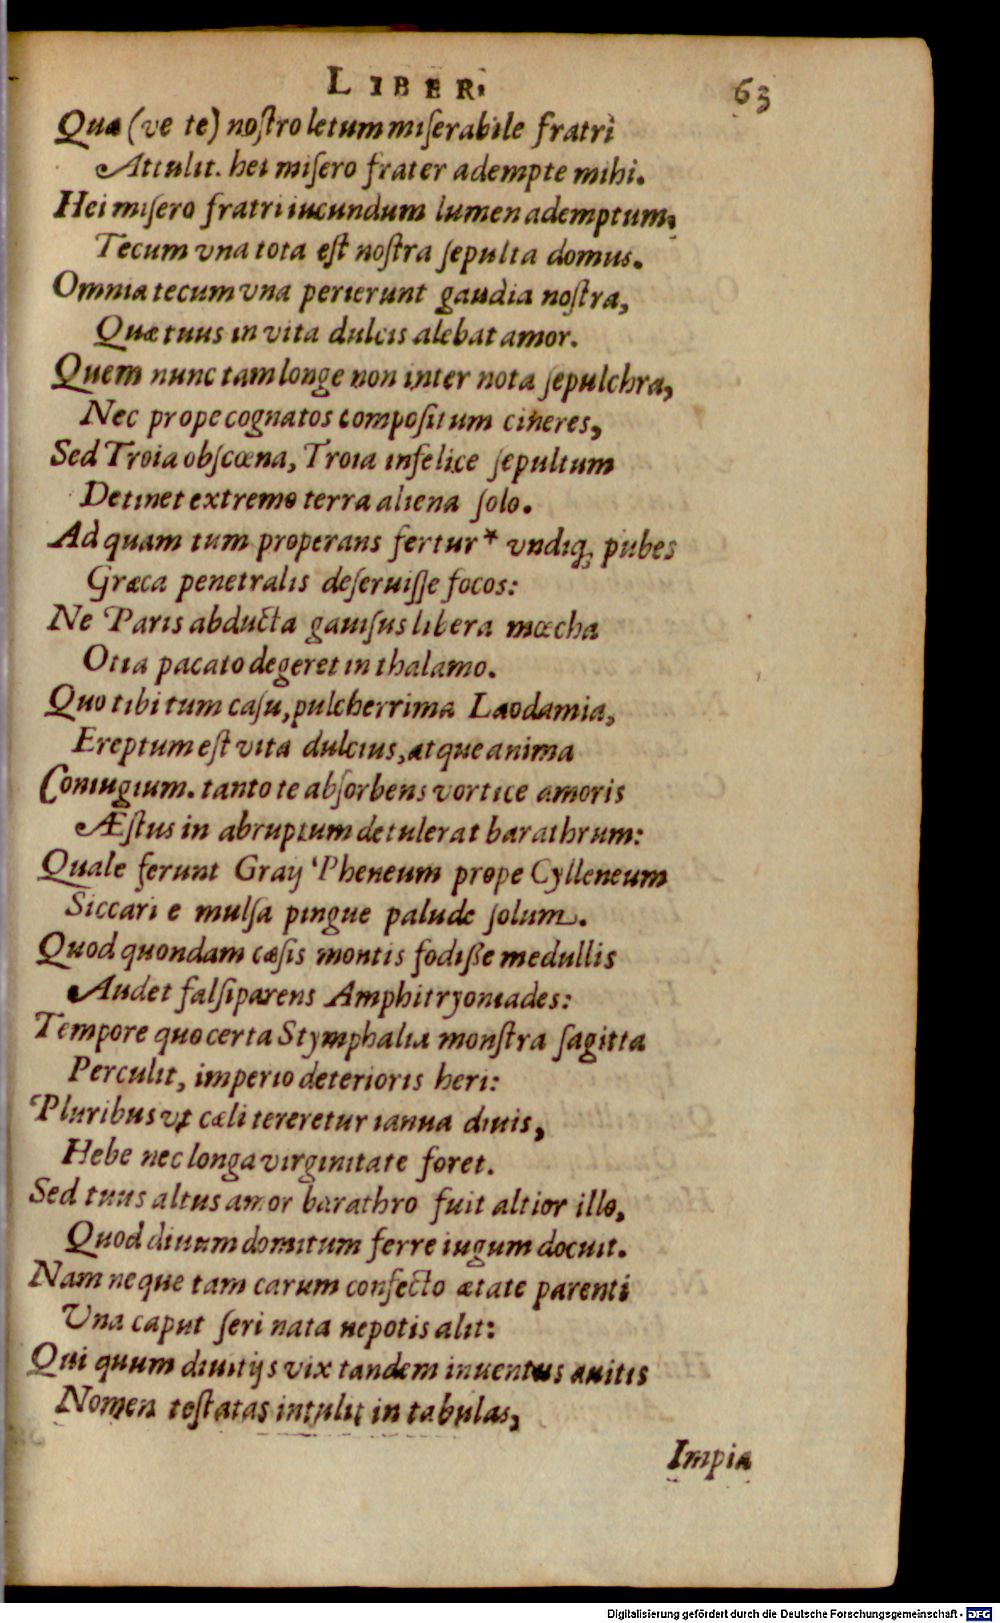 LIBER. 63
Quæ (ve te) nostro letum miserabile fratri
Attulit. hei misero frater adempte mihi.
Hei misero fratri iucundum lumen ademptum,
Tecum vna tota est nostra sepulta domus.
Omnia tecum vna perierunt gaudia nostra,
Quæ tuus in vita dulcis alebat amor.
Quem nunc tam longe non inter nota sepulchra,
Nec prope cognatos compositum cineres,
Sed Troia obscœna, Troia infelice sepultum
Detinet extremo terra aliena solo.
Ad quam tum properans fertur* vndiq; pubes
Græca penetralis deseruisse focos:
Ne Paris abducta gauisus libera mœcha
Otia pacato degeret in thalamo.
Quo tibi tum casu, pulcherrima Laodamia,
Ereptum est vita dulcius, atque anima
Coniugium. tanto te absorbens vortice amoris
Æstus in abruptum detulerat barathrum:
Quale ferunt Graij Pheneum prope Cylleneum
Siccari e mulsa pingue palude solum.
Quod quondam cæsis montis fodisse medullis
Audet falsiparens Amphitryoniades:
Tempore quo certa Stymphalia monstra sagitta
Perculit, imperio deterioris heri:
Pluribus vt cæli tereretur ianua diuis,
Hebe nec longa virginitate foret.
Sed tuus altus amor barathro fuit altior illo,
Quod diuum domitum ferre iugum docuit.
Nam neque tam carum confecto ætate parenti
Vna caput seri nata nepotis alit:
Qui quum diuitijs vix tandem inuentus auitis
Nomen testatas intulit in tabulas,
Impia
Digitalisierung gefördert durch die Deutsche Forschungsgemeinschaft - DFG